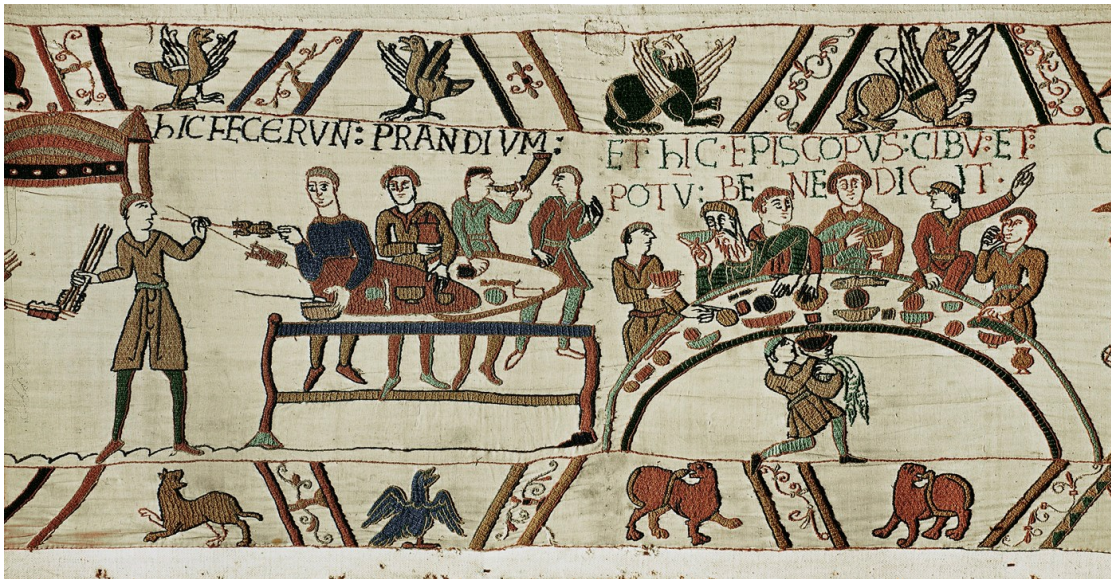 hIC FECERVN: PRANDIVM:
ET hIC·EPISCOPVS:CIBV:ET:
POTV: BE NE DIC IT·